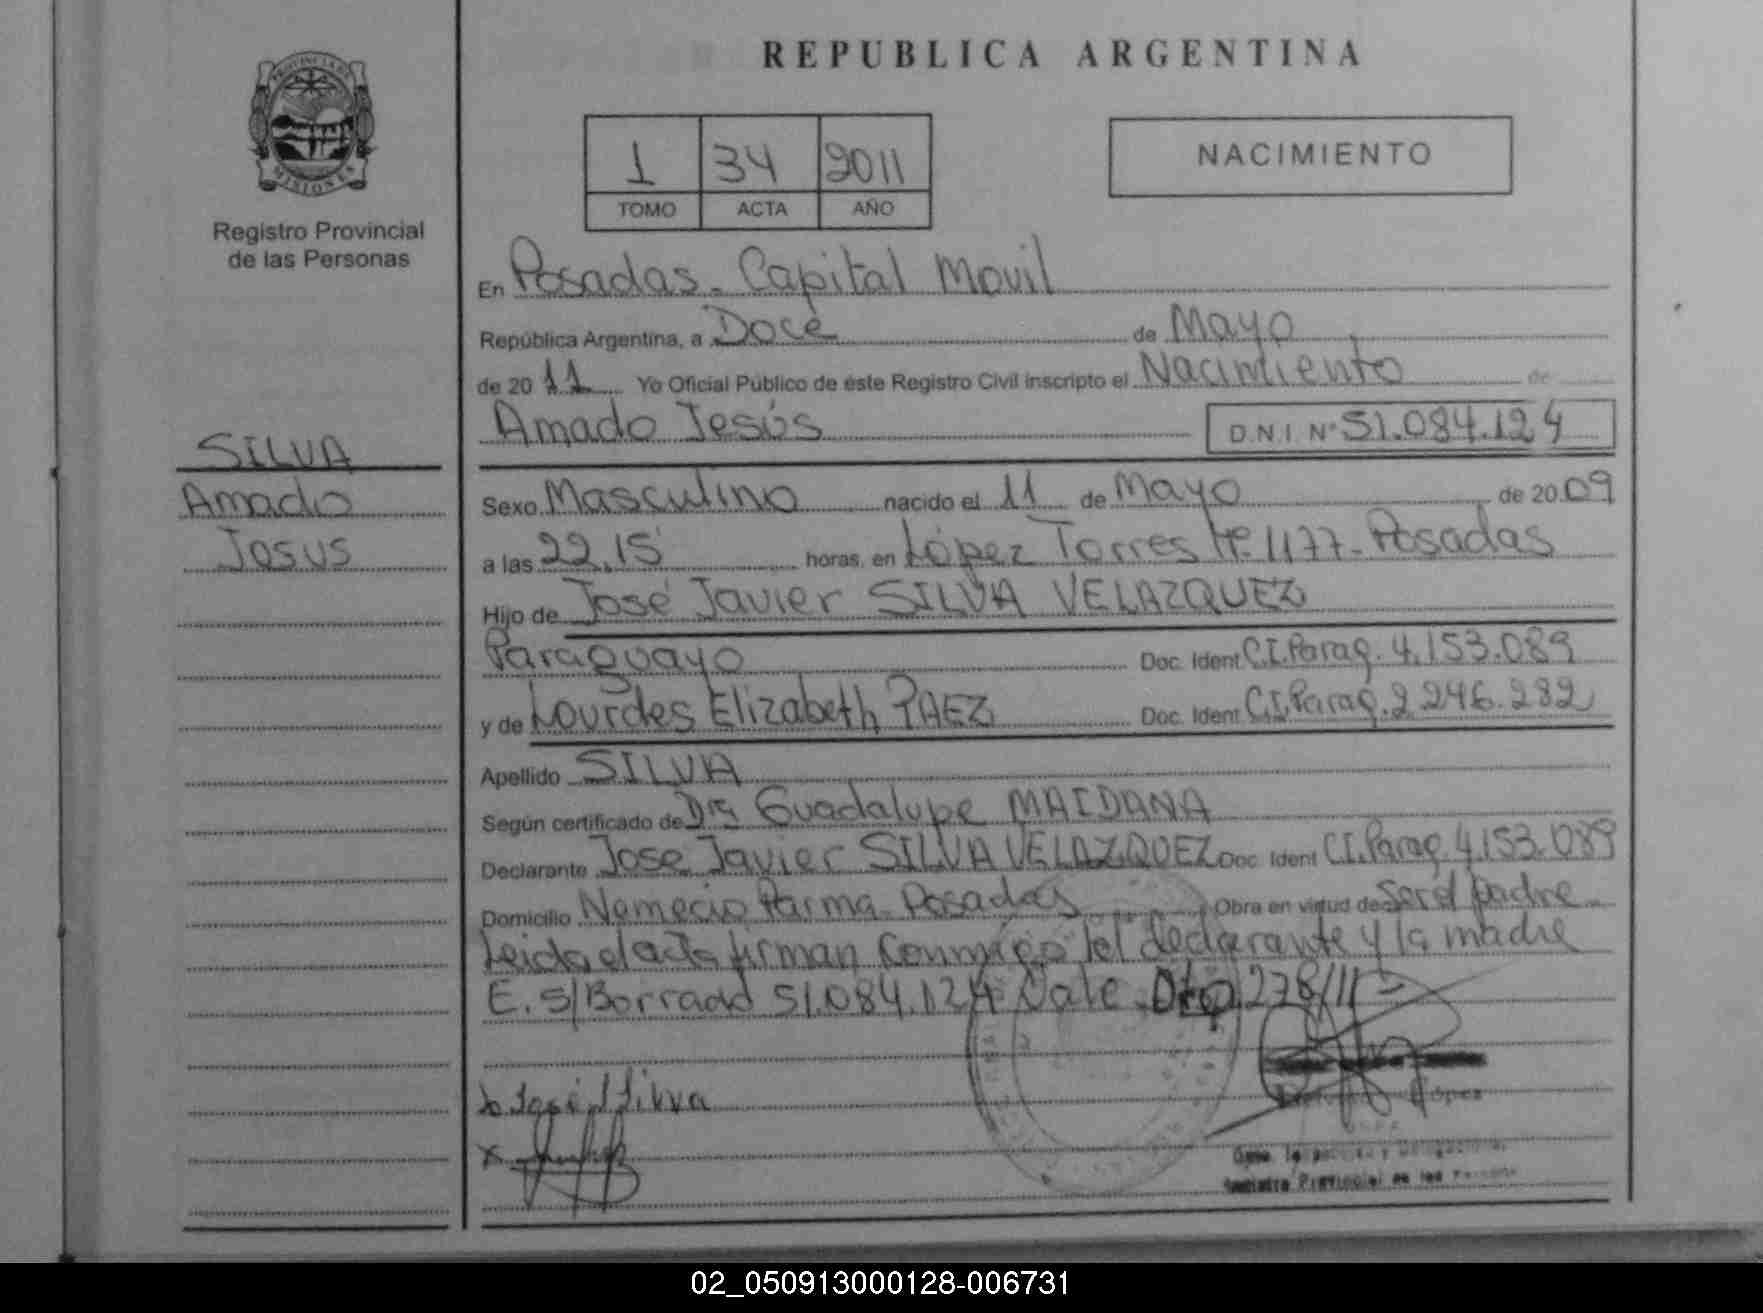 PROVINCIA DE
MISIONES
Registro Provincial
de las Personas
SILVA
Amado
Jesus
REPUBLICA ARGENTINA
1 34 2011
TOMO ACTA AÑO
NACIMIENTO
En Posadas - Capital Movil
República Argentina, a Doce de Mayo
de 20 11 Yo Oficial Público de éste Registro Civil inscripto el Nacimiento de
Amado Jesús D.N.I. Nº 51.084.124
Sexo Masculino nacido el 11 de Mayo de 20 09
a las 22,15 horas, en López Torres Nº 1177 - Posadas
Hijo de José Javier SILVA VELAZQUEZ
Paraguayo Doc. Ident C.I. Parag. 4.153.089
y de Lourdes Elizabeth PAEZ Doc. Ident C.I. Parag. 2.246.282
Apellido SILVA
Según certificado de Dra Guadalupe MAIDANA
Declarante Jose Javier SILVA VELAZQUEZ Doc. Ident C.I. Parag. 4.153.089
Domicilio Nemecio Parma - Posadas Obra en virtud de Ser el padre
Leida el acta firman Conmigo el declarante y la madre
E. s/Borrado 51.084.124 Vale. 278/11
José Silva
x
López
Registro Provincial de las Personas
02_050913000128-006731